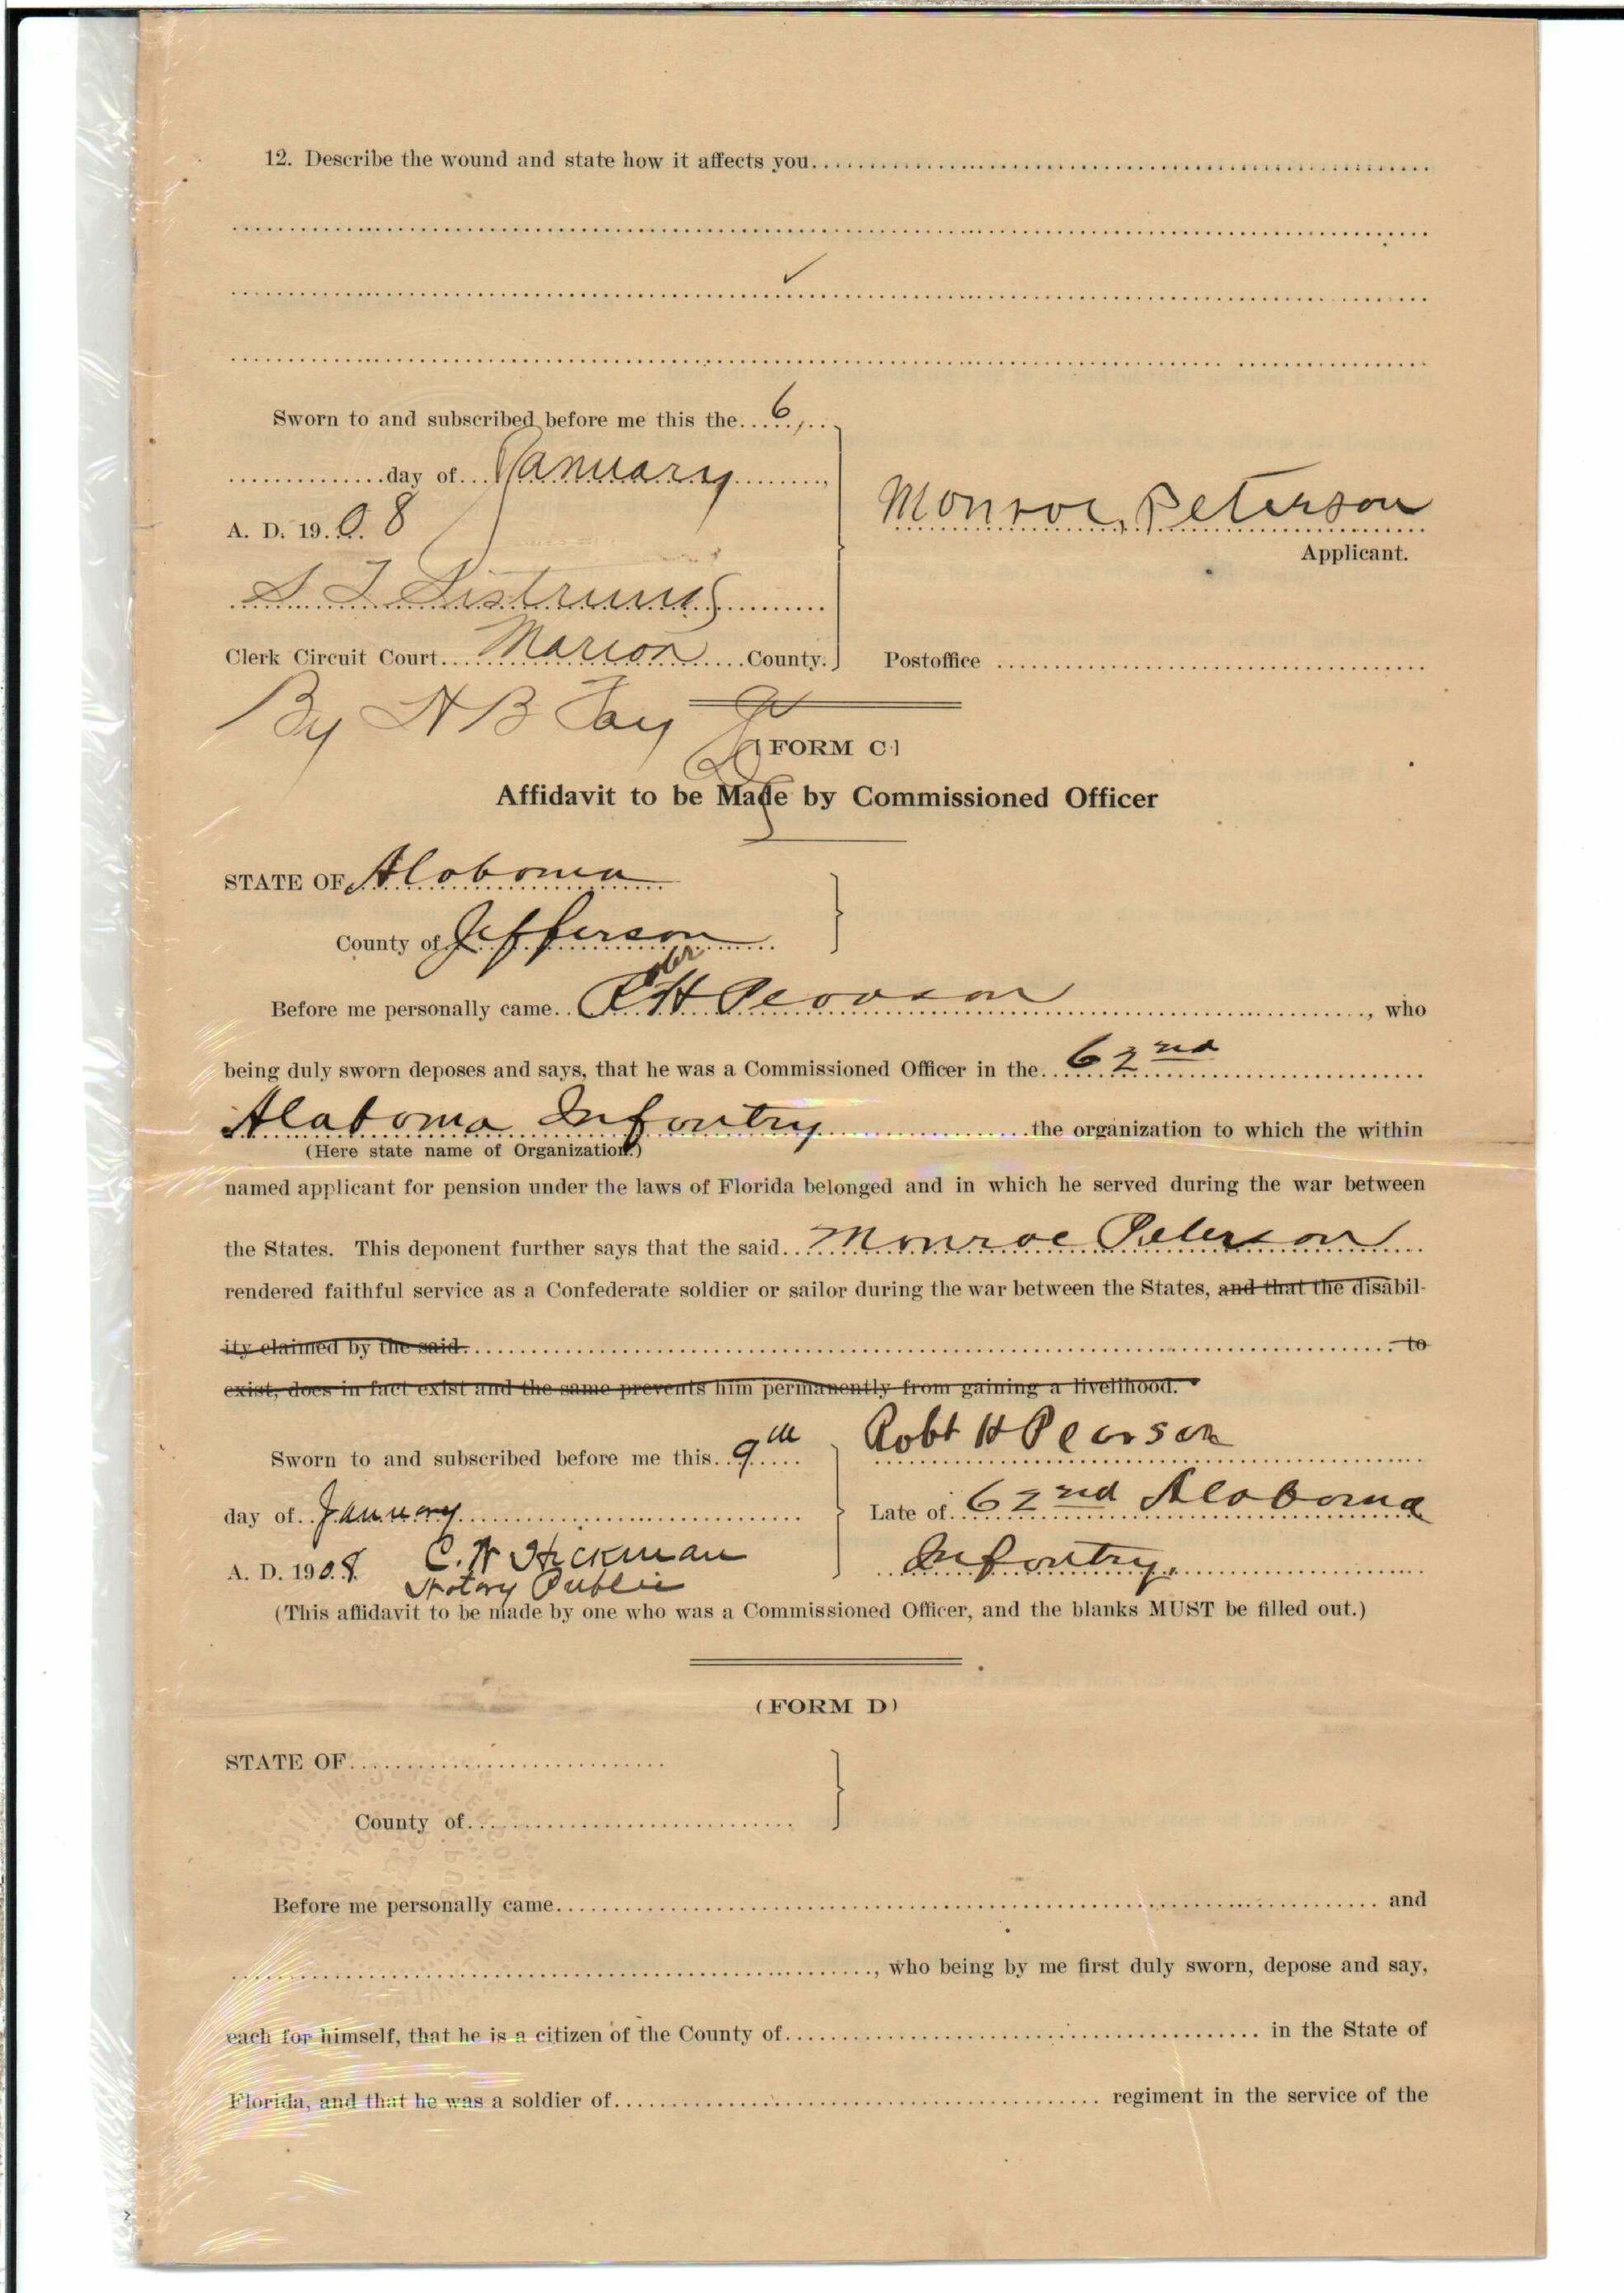 12. Describe the wound and state how it affects you
Sworn to and subscribed before me this the 6
day of January
A. D. 19 08
Monroe Peterson
Applicant.
S T Sistrunk
Clerk Circuit Court Marion County.
Postoffice
By H B
[FORM C]
Affidavit to be Made by Commissioned Officer
STATE OF Alabama
County of Jefferson
Before me personally came R H Pearson, who
being duly sworn deposes and says, that he was a Commissioned Officer in the 62nd
Alabama Infantry the organization to which the within
(Here state name of Organization.)
named applicant for pension under the laws of Florida belonged and in which he served during the war between
the States. This deponent further says that the said Monroe Peterson
rendered faithful service as a Confederate soldier or sailor during the war between the States, and that the disabil-
ity claimed by the said to
exist, does in fact exist and the same prevents him permanently from gaining a livelihood.
Sworn to and subscribed before me this 9th
Robt H Pearson
day of January
Late of 62nd Alabama
A. D. 1908 Hickman
Infantry.
Notary Public
(This affidavit to be made by one who was a Commissioned Officer, and the blanks MUST be filled out.)
(FORM D)
STATE OF
County of
Before me personally came and
, who being by me first duly sworn, depose and say,
each for himself, that he is a citizen of the County of in the State of
Florida, and that he was a soldier of regiment in the service of the